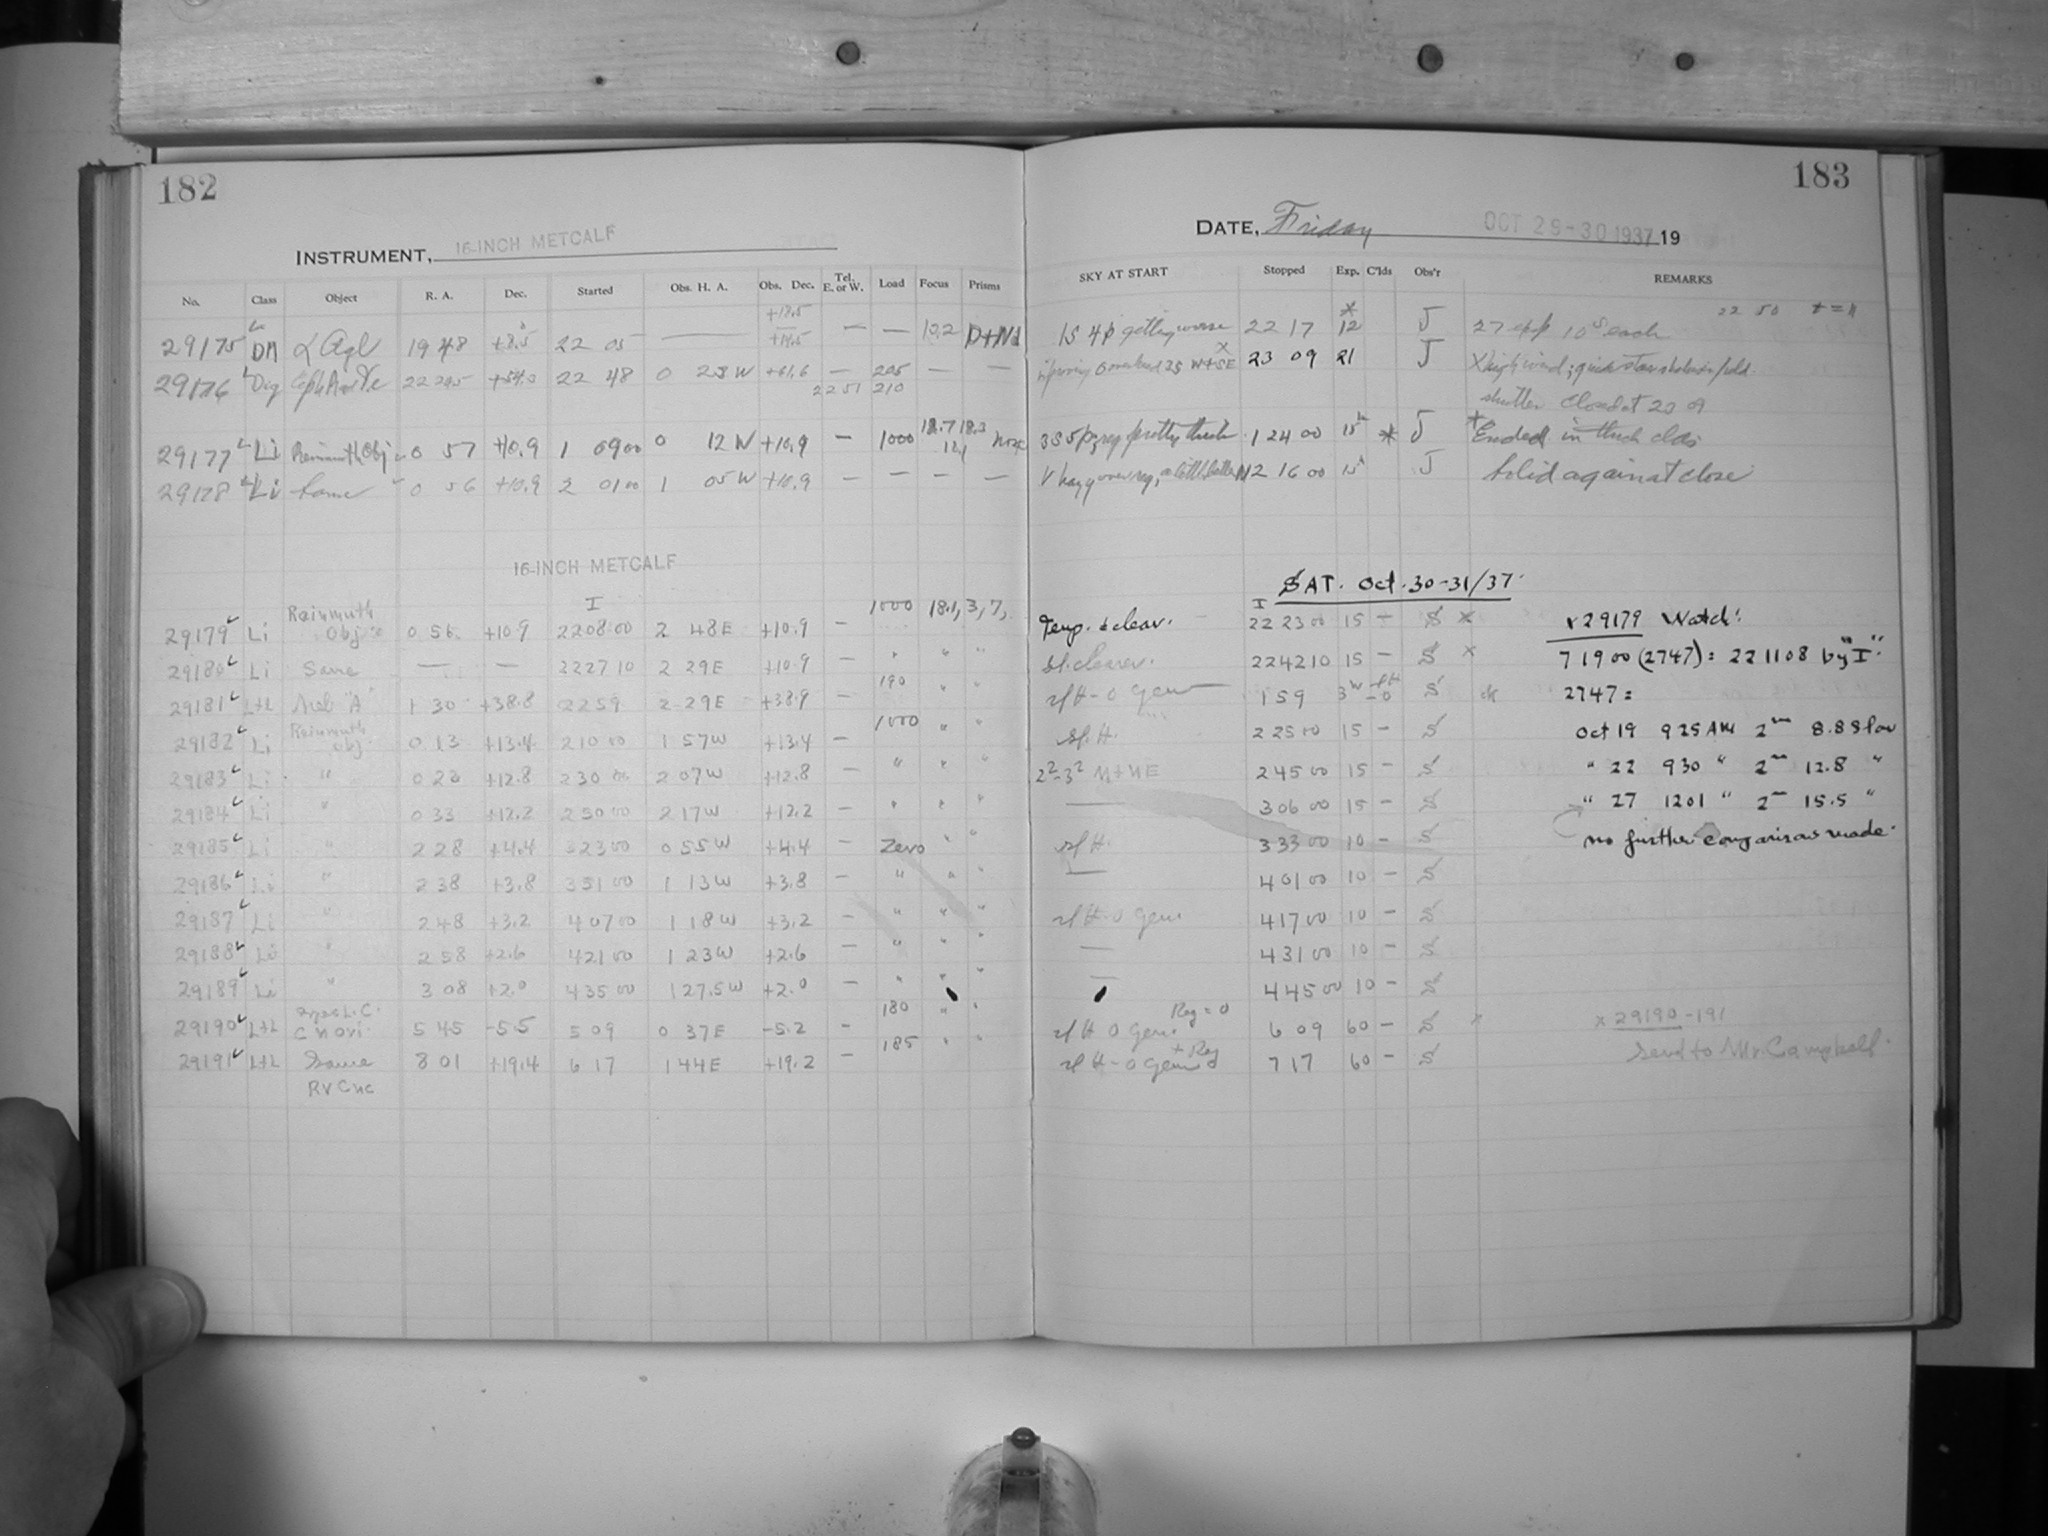 182
INSTRUMENT, 16-INCH METCALF
No. Class Object R. A. Dec. Started Obs. H. A. Obs. Dec. Tel. E. or W. Load Focus Prisms
29175 DM α Aql 19 48 +8.5 22 05 — — —
29176 22 48 0 23 W +61.6 — 205 — —
22 51 210
29177 Li Reinmuth Obj 0 57 +10.9 1 09 00 0 12 W +10.9 — 1000 None
29178 Li Same 0 56 +10.9 2 01 00 1 05 W +10.9 — — — —
16-INCH METCALF
I
29179 Li Reinmuth Obj 0 56 +10.9 22 08 00 2 48 E +10.9 — 1000 18.1, 3, 7,
29180 Li Same — — 22 27 10 2 29 E +10.9 — " " "
29181 L+L "A" 1 30 +38.8 22 59 2 29 E +38.9 — 190 " "
29182 Li Reinmuth Obj. 0 13 +13.4 2 10 00 1 57 W +13.4 — 1000 " "
29183 Li " 0 23 +12.8 2 30 00 2 07 W +12.8 — " " "
29184 Li " 0 33 +12.2 2 50 00 2 17 W +12.2 — " " "
29185 Li " 2 28 +4.4 3 23 00 0 55 W +4.4 — Zero " "
29186 Li " 2 38 +3.8 3 51 00 1 13 W +3.8 — " " "
29187 Li " 2 48 +3.2 4 07 00 1 18 W +3.2 — " " "
29188 Li " 2 58 +2.6 4 21 00 1 23 W +2.6 — " " "
29189 Li " 3 08 +2.0 4 35 00 1 27.5 W +2.0 — " " "
29190 L+L 5 45 -5.5 5 09 0 37 E -5.2 — 180 " "
29191 L+L Same 8 01 +19.4 6 17 1 44 E +19.2 — 185 " "
RV Cnc
183
DATE, Friday OCT 29-30 1937 19
SKY AT START Stopped Exp. C'lds Obs'r REMARKS
1S 4p getting worse 22 17 12 J 27 exp 10s each
23 09 21 J X high wind;
shutter closed at 23 09
pretty thick 1 24 00 15 * J * Ended in thick clds
2 16 00 15 J Solid against close
SAT. Oct. 30-31/37.
I
Temp. & clear. 22 23 00 15 — S x x 29179 Watch:
sl. clearer. 22 42 10 15 — S x 7 19 00 (2747) = 22 11 08 by "I".
sl H - 0 Gem 1 59 S 2747 =
sl. H. 2 25 00 15 — S Oct 19 9 25 AM 2m 8.8 Slow
2 45 00 15 — S " 22 9 30 " 2m 12.8 "
— 3 06 00 15 — S " 27 12 01 " 2m 15.5 "
sl H. 3 33 00 10 — S no further comparisons made.
— 4 01 00 10 — S
sl H - 0 Gem 4 17 00 10 — S
— 4 31 00 10 — S
— 4 45 00 10 — S
sl H 0 Gem. Reg = 0 6 09 60 — S " x 29190-191
sl H - 0 Gem + Reg 7 17 60 — S Send to Mr. Campbell.